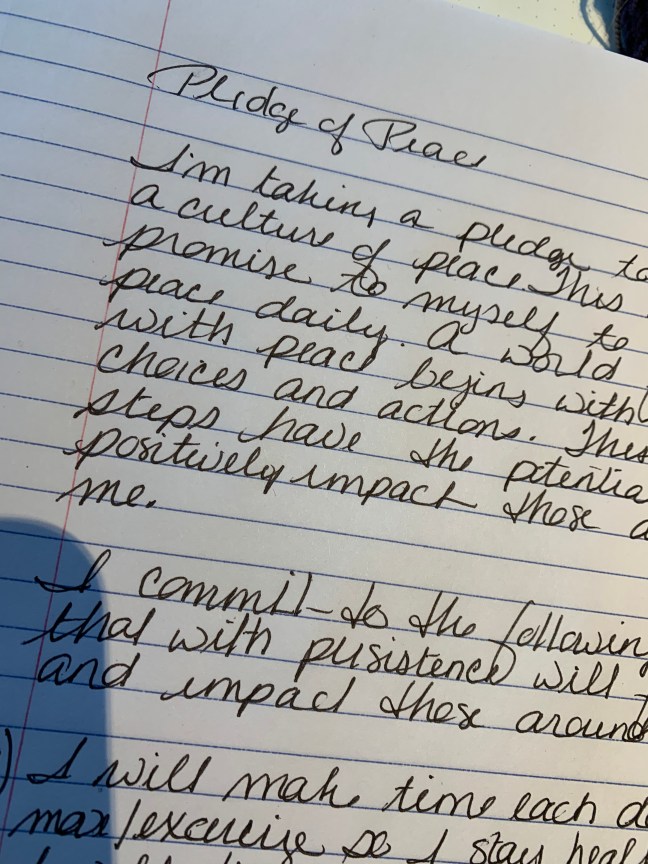 Pledge of Peace
I'm taking a pledge to
a culture of peace. This
promise to myself to
peace daily. A world
with peace begins with
choices and actions. These
steps have the potentia
positively impact those a
me.
I commit to the followin
that with persistence will
and impact those around
) I will make time each d
max/excercise so I stay heal